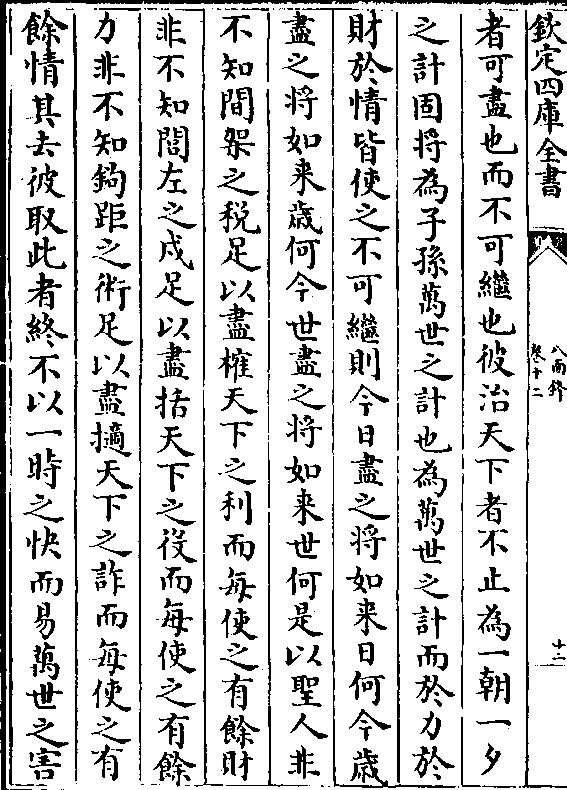 欽定四庫全書
八面鋒
卷十二
十二
者可盡也而不可繼也彼治天下者不止為一朝一夕
之計固將為子孫萬世之計也為萬世之計而於力於
財於情皆使之不可繼則今日盡之将如来日何今歳
盡之将如来歳何今世盡之将如来世何是以聖人非
不知間架之税足以盡榷天下之利而每使之有餘財
非不知閭左之戍足以盡括天下之役而每使之有餘
力非不知鉤距之術足以盡擿天下之詐而每使之有
餘情其去彼取此者終不以一時之快而易萬世之害